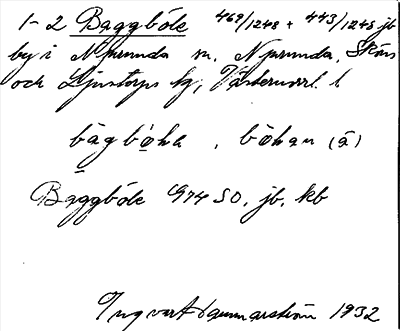 1-2 Baggböle 469/1248 + 443/1248 jb
by i Njurunda sn, Njurunda, Sköns
och Ljustorps tg, Västernorrl. l
bàgbö̀ha, bö̀han (à)
Baggböle 1974 SO, jb, kb
Ingvar Hammarström 1932